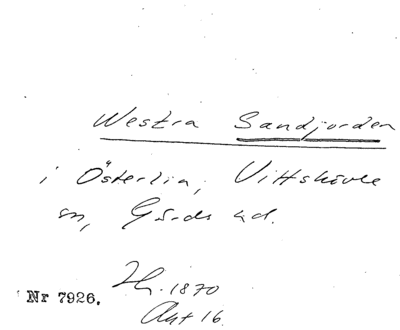 Westra Sandjorden
i Österlin, Vittskövle
sn, Gärds hd.
1870
Nr 7926.
Akt 16.